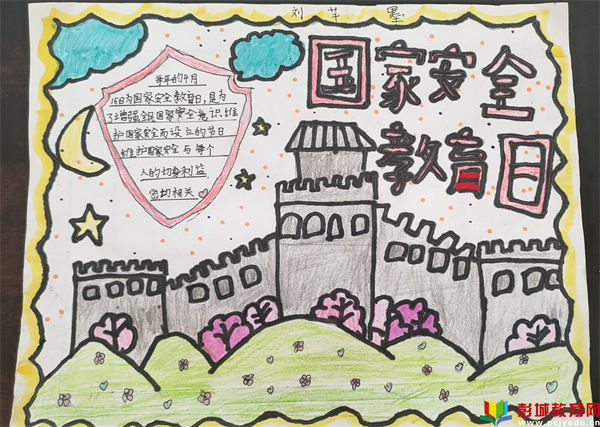 刘芊墨
国家安全
教育日
每年的4月
15日为国家安全教育日,是为
了增强全民国家安全意识,维
护国家安全而设立的节日
维护国家安全与每个
人的切身利益
密切相关
彭城教育网
www.pcjyedu.cn